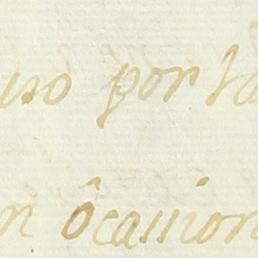 uso por la
n ôcasion